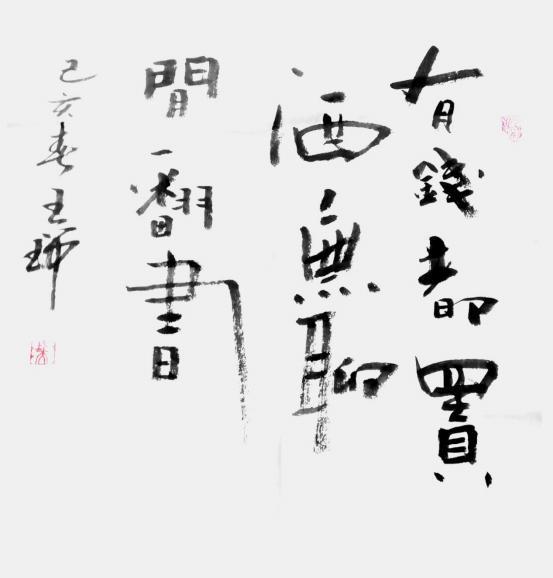 有錢都買
酒無聊
閒翻書
己亥春王